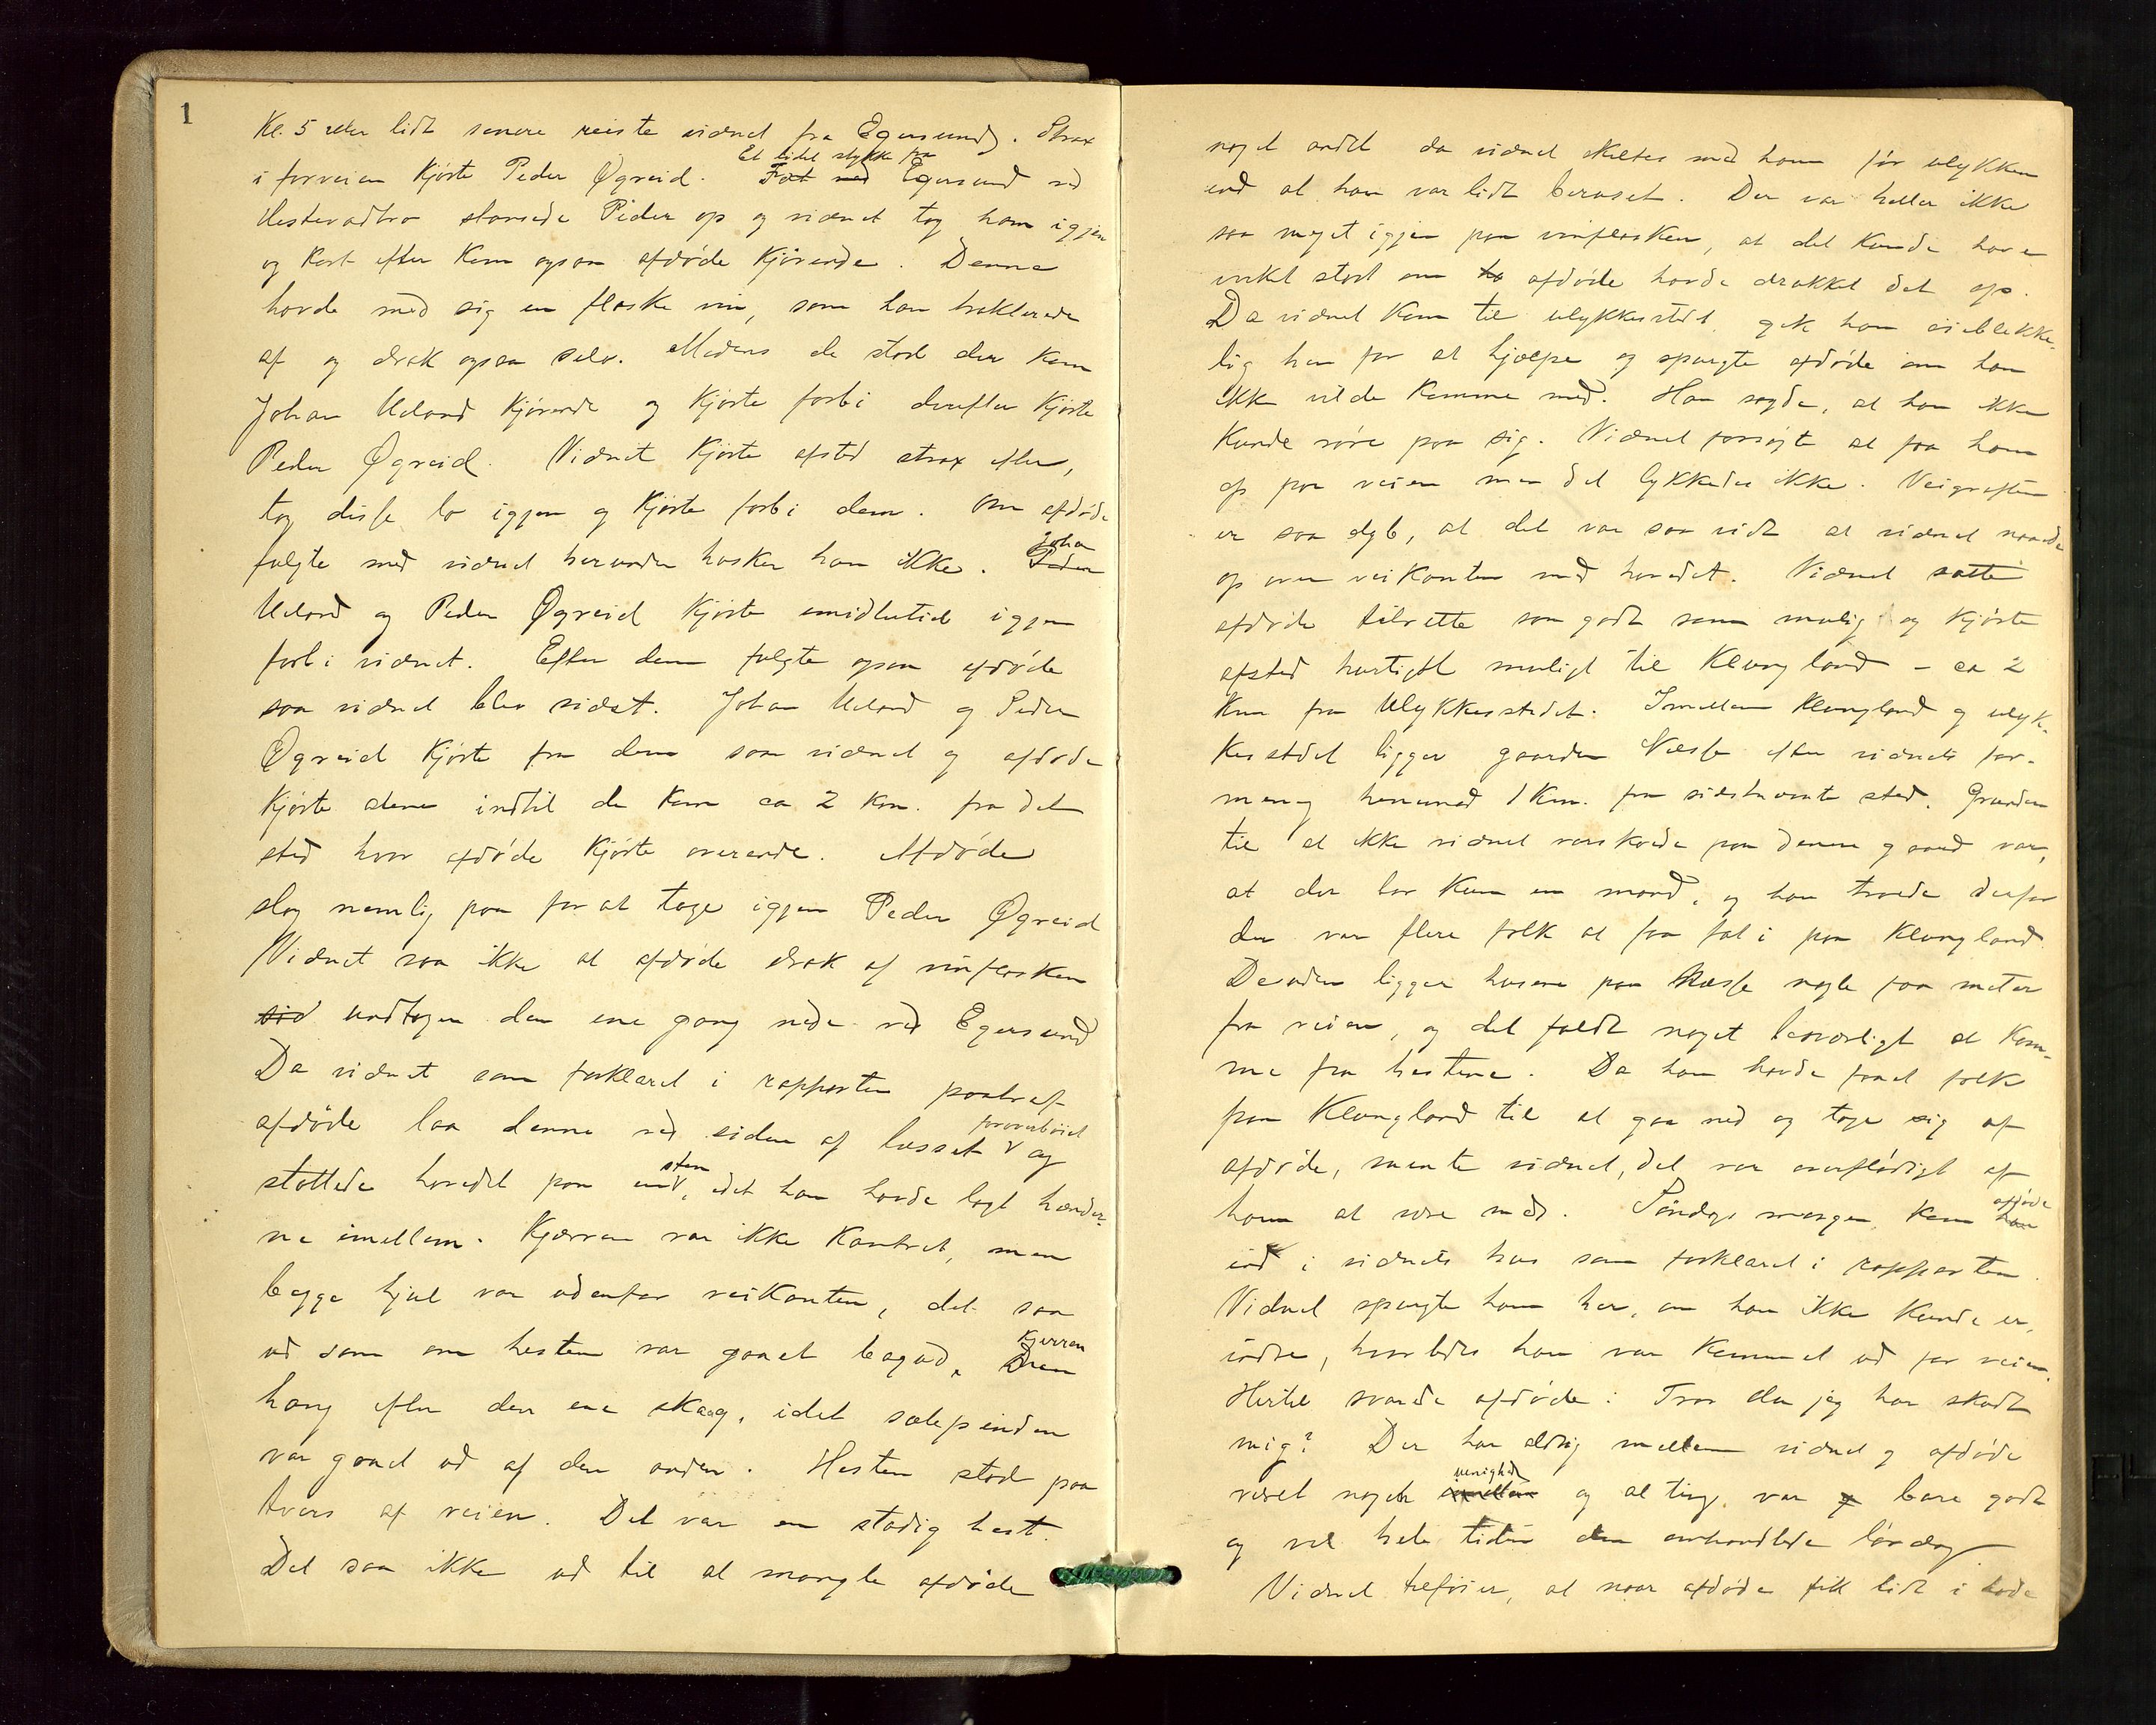 1
Kl. 5 eller lidt senere reiste vidnet fra Egersund. Strax
i forveien kjørte Peder Øgreid. Et lidet stykke fra Egersund ved
Hestevadbro stansede Peder op og vidnet tog ham igjen
og kort efter kom ogsaa afdøde kjørende. Denne
havde med sig en flaske vin, som han trakterede
af og drak ogsaa selv. Medens de stod der kom
Johan Ueland kjørende og kjørte forbi derefter kjørte
Peder Øgreid. Vidnet kjørte afsted strax efter,
tog disse to igjen og kjørte forbi dem. Om afdøde
fulgte med vidnet herunder husker han ikke. Johan
Ueland og Peder Øgreid kjørte imidlertid igjen
forbi vidnet. Efter dem fulgte ogsaa afdøde
saa vidnet blev sidst. Johan Ueland og Peder
Øgreid kjørte fra dem saa vidnet og afdøde
kjørte alene indtil de kom ca 2 km. fra det
sted hvor afdøde kjørte overende. Afdøde
slog nemlig paa for at tage igjen Peder Øgreid
Vidnet saa ikke at afdøde drak af vinflasken
undtagen den ene gang nede ved Egersund
Da vidnet som forklaret i rapporten paatraf
afdøde laa denne ved siden af læsset foroverbøiet og
støttede hovedet paa en sten, idet han havde lagt hænder-
ne imellem. Kjærren var ikke kantret, men
begge hjul var udenfor veikanten, det saa
ud som om hesten var gaaet bagud, Kjerren
hang efter den ene skaag, idet sælepinden
var gaaet ud af den anden. Hesten stod paa
tvers af veien. Det var en stadig hest.
Det saa ikke ud til at mangle afdøde
noget andet da vidnet skiltes med ham før ulykken
end at han var lidt beruset. Der var heller ikke
saa meget igjen paa vinflasken, at det kunde have
virket stort om afdøde havde drukket det op.
Da vidnet kom til ulykkesstedet gik han øieblikke-
lig hen for at hjælpe og spurgte afdøde om han
ikke vilde komme med. Han sagde, at han ikke
kunde røre paa sig. Vidnet forsøgte at faa ham
op paa veien men det lykkedes ikke. Veigrøften
er saa dyb, at det var saa vidt at vidnet naaede
op over veikanten med hovedet. Vidnet satte
afdøde tilrette saa godt som mulig og kjørte
afsted hurtigst muligt til Klungland – ca 2
km fra Ulykkesstedet. Imellem Klungland og ulyk-
kesstedet ligger gaarden Næsse efter vidnets for-
mening henimod 1 km. fra sidstnævnte sted. Grunden
til at ikke vidnet varskoede paa denne gaard var,
at der bor kun en mand, og han troede derfor
der var flere folk at faa fat i paa Klungland
Desuden ligger husene paa Næsse nogle faa meter
fra veien, og det faldt noget besværligt at kom-
me fra hestene. Da han havde faaet folk
paa Klungland til at gaa ned og tage sig af
afdøde, mente vidnet, det var overflødigt af
ham at være med. Søndags morgen kom afdøde
ind i vidnets hus som forklaret i rapporten.
Vidnet spurgte ham her, om han ikke kunde er-
indre, hvorledes han var kommet ud for veien.
Hertil svarede afdøde: Tror du jeg har skadt
mig? Der har aldrig mellem vidnet og afdøde
været nogen uenighed og al ting var bare godt
og vel hele tiden den omhandlede lørdag
Vidnet tilføier, at naar afdøde fik lidt i hode